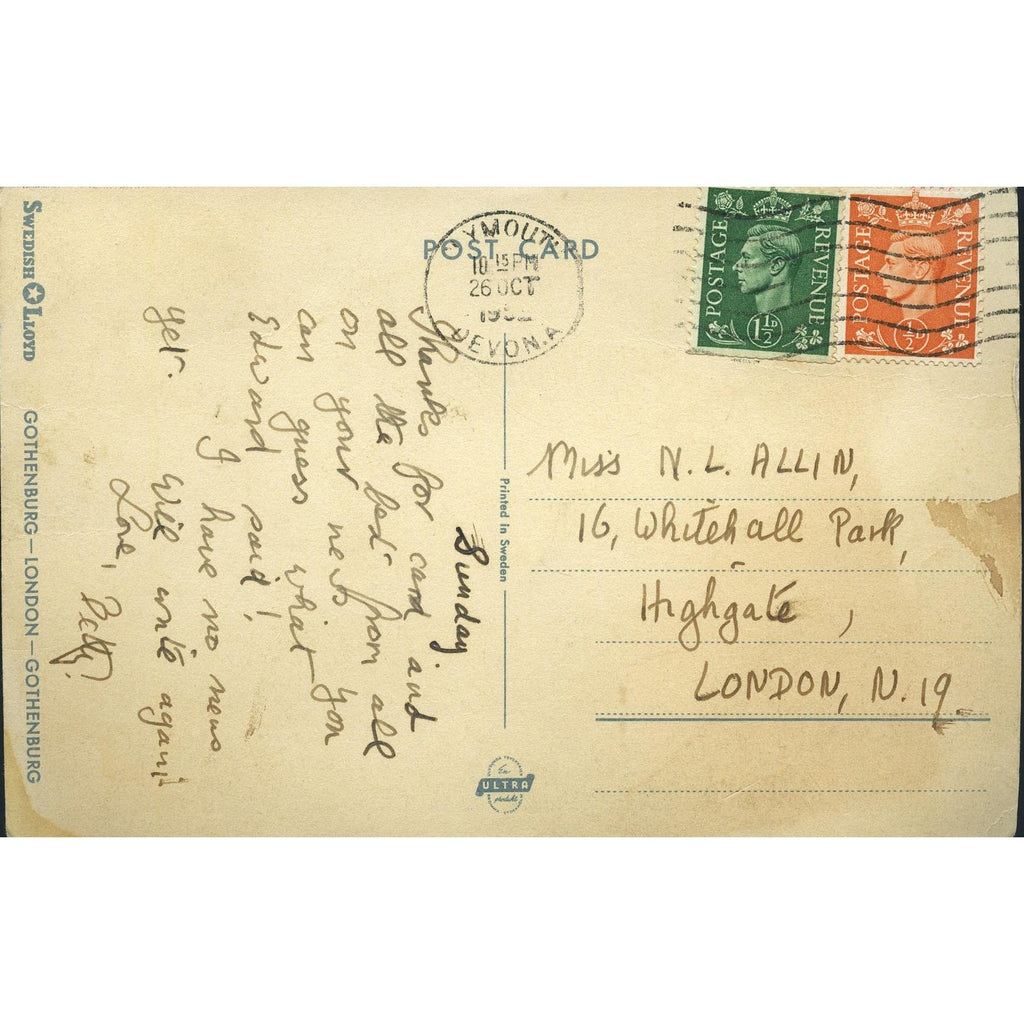 SWEDISH LLOYD
GOTHENBURG—LONDON—GOTHENBURG
POST CARD
Printed in Sweden
En
ULTRA
produkt
YMOUT
10 15 PM
26 OCT
DEVON.A
POSTAGE REVENUE
1½D
POSTAGE REVENUE
½D
Sunday
Thanks for card and
all the best from all
on your news. You
can guess what
Edward said!
I have no news
yet. Will write again!
Love, Betty.
Miss N. L. ALLIN,
16, Whitehall Park,
Highgate,
LONDON, N.19.